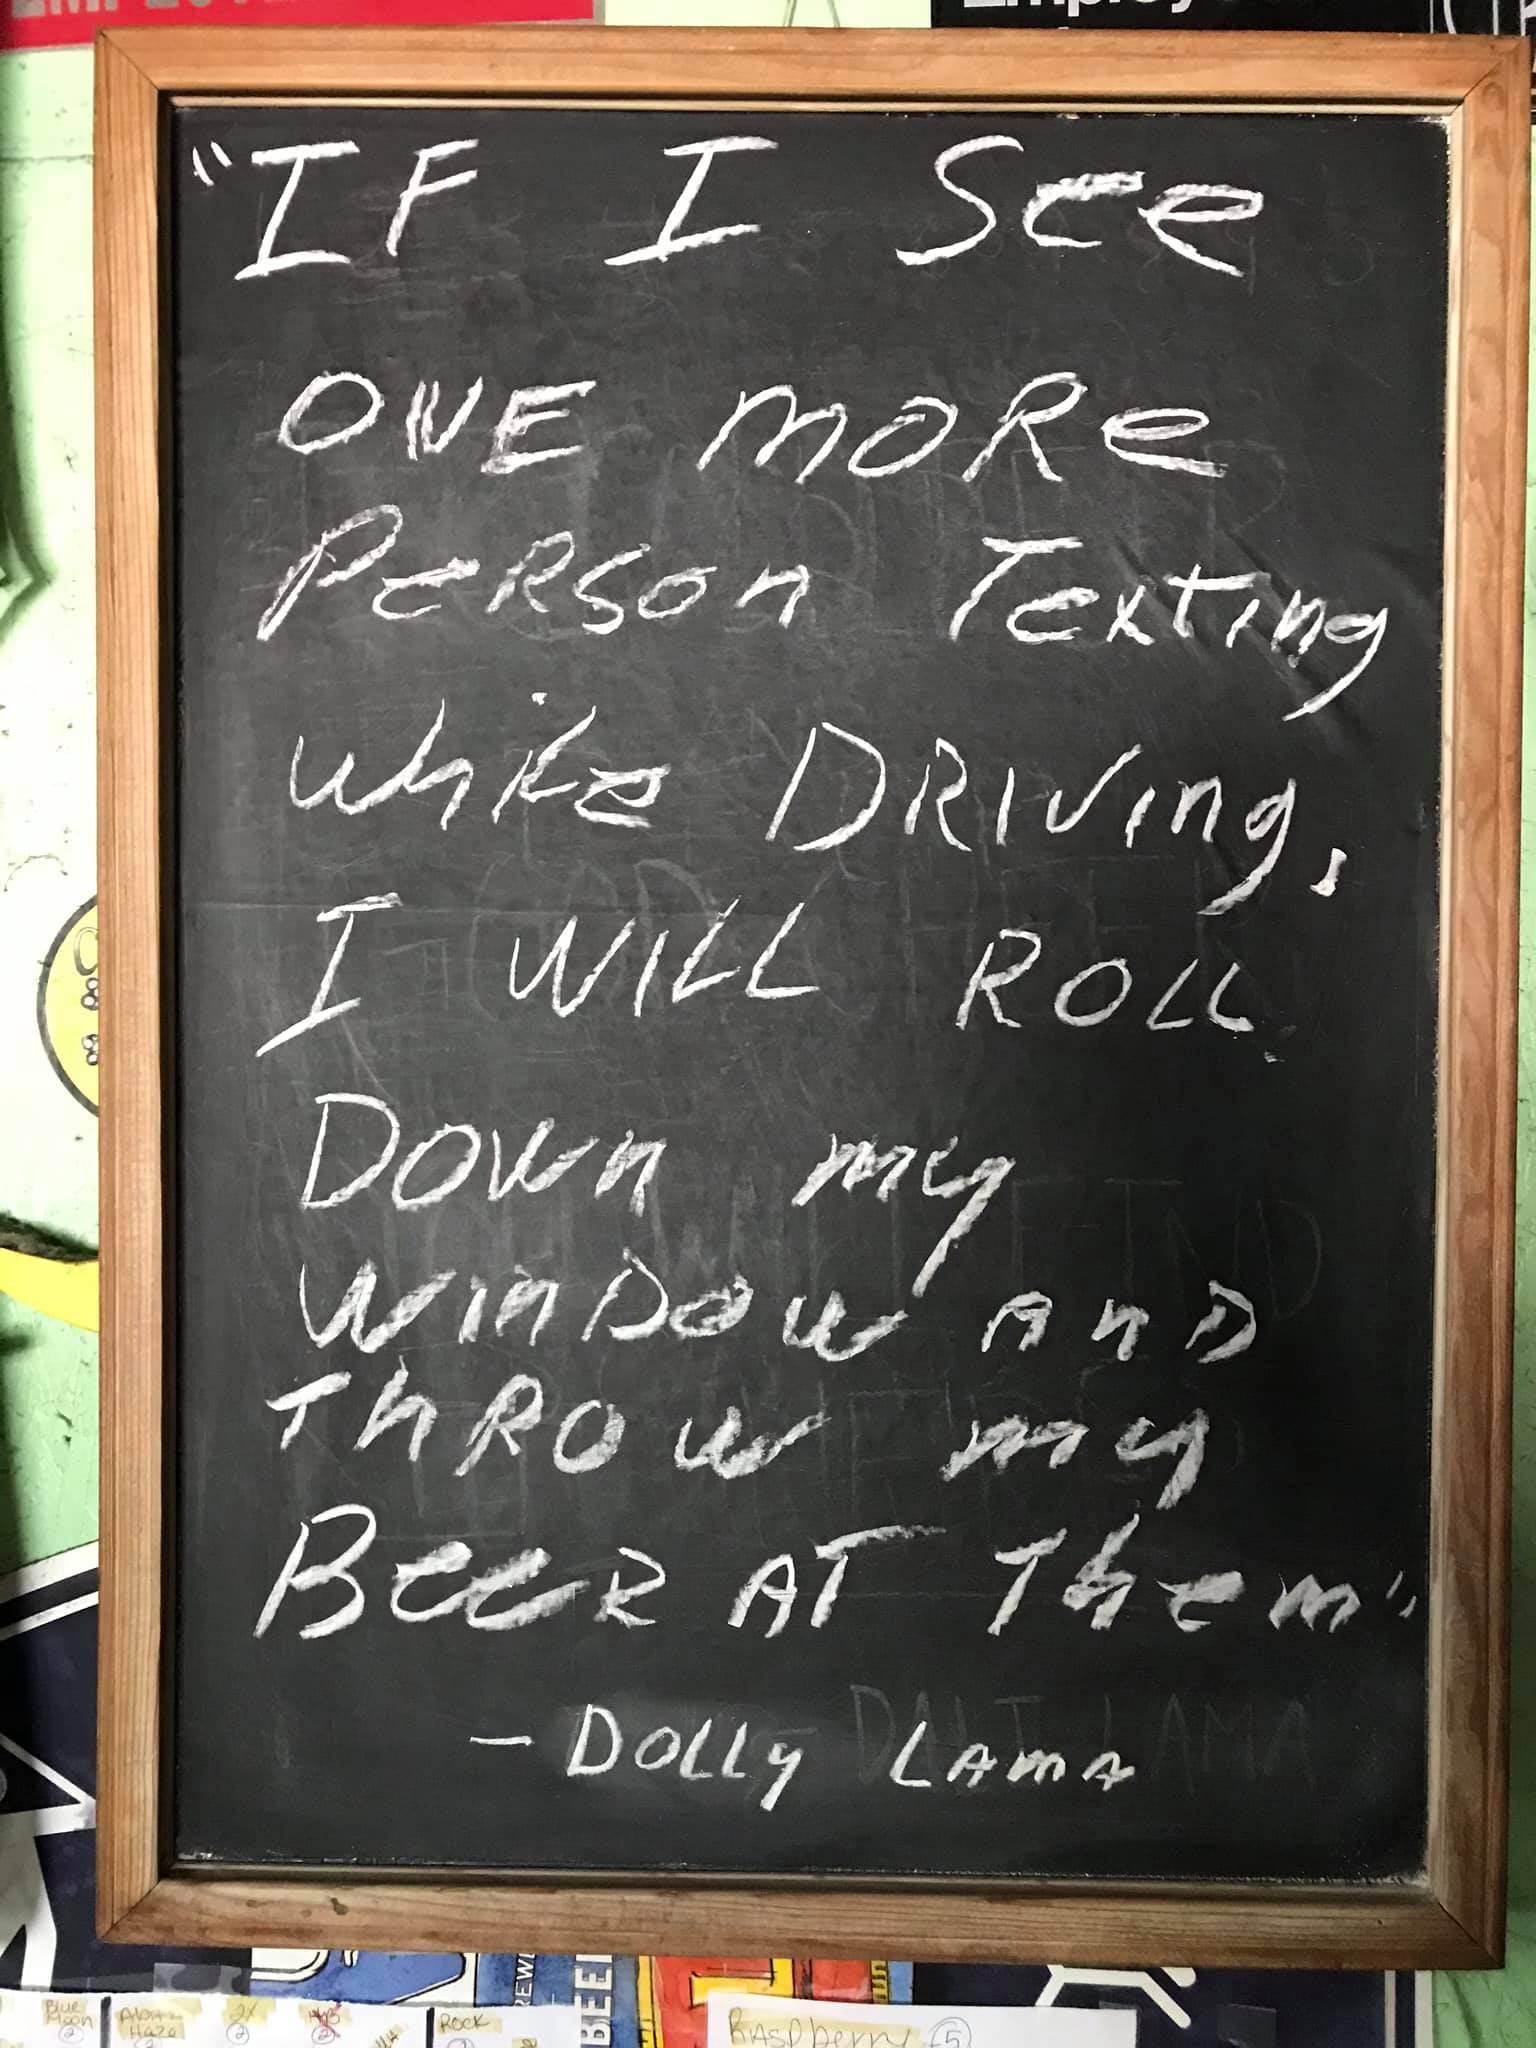 "IF I See
ONE MORe
PeRSon Texting
while DRIVing,
I WILL ROLL
Down my
WinDow AnD
ThROw my
BeeR AT Them"
- DOLLy LAmA
Blue
Moon
2
2X
2
ROCK
RASpberry 5
BEE